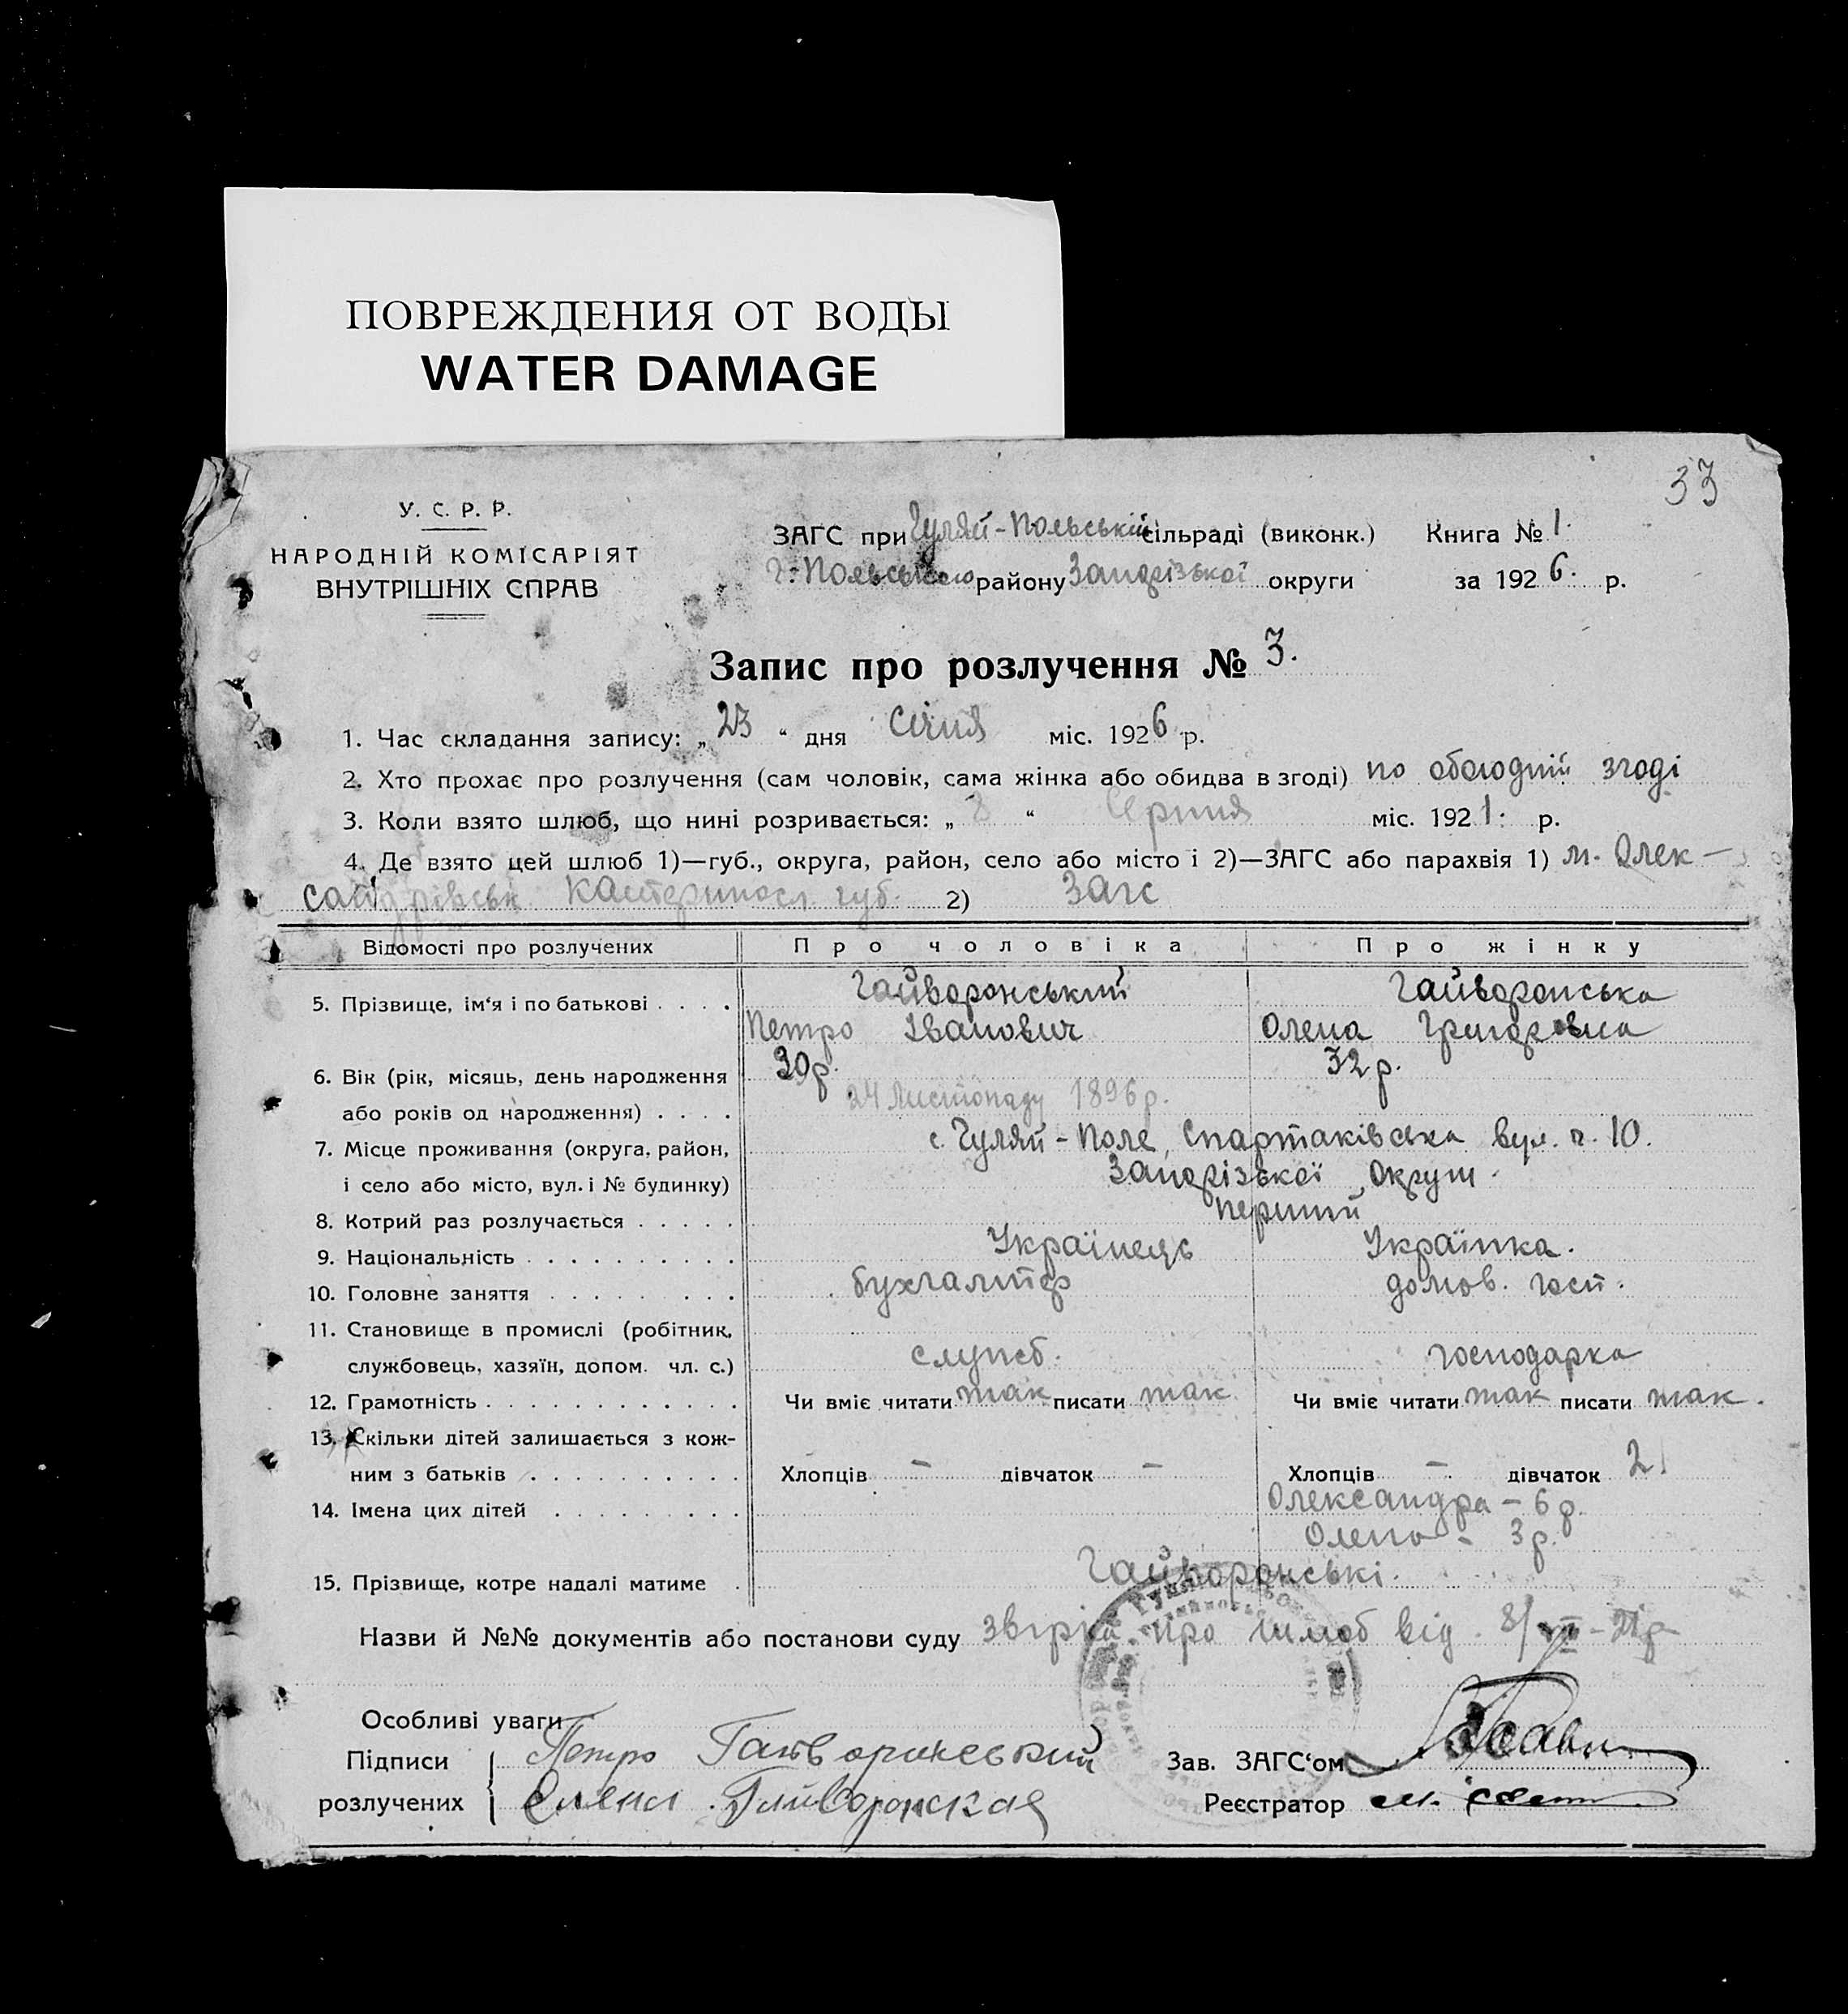 ПОВРЕЖДЕНИЯ ОТ ВОДЫ
WATER DAMAGE
33
У. С. Р. Р.
НАРОДНІЙ КОМІСАРІЯТ
ВНУТРІШНІХ СПРАВ
ЗАГС при Гуляй-Польській сільраді (виконк.) Книга № 1.
Г.-Польського району Запорізької округи за 1926. р.
Запис про розлучення № 3.
1. Час складання запису: „23“ дня Січня міс. 1926 р.
2. Хто прохає про розлучення (сам чоловік, сама жінка або обидва в згоді) по обоюдній згоді
3. Коли взято шлюб, що нині розривається: „8“ Серпня міс. 1921. р.
4. Де взято цей шлюб 1)—губ., округа, район, село або місто і 2)—ЗАГС або парахвія 1) м. Олек-
сандрівськ Катериносл. губ. 2) Загс
Відомості про розлучених Про чоловіка Про жінку
5. Прізвище, ім‘я і по батькові . . . . Гайворонський Гайворонська
Петро Іванович Олена Григоровна
6. Вік (рік, місяць, день народження 30р. 32 р.
або років од народження) . . . . 24 Листопаду 1896 р.
7. Місце проживання (округа, район, с. Гуляй-Поле, Спартаківська вул. ч. 10.
і село або місто, вул. і № будинку) Запорізької Округи.
8. Котрий раз розлучається . . . . . перший
9. Національність . . . . . . . . . . Українець Українка.
10. Головне заняття . . . . . . . . . бухгалтер домов. госп.
11. Становище в промислі (робітник,
службовець, хазяїн, допом. чл. с.) служб. господарка
12. Грамотність . . . . . . . . . . . . Чи вміє читати так писати так Чи вміє читати так писати так.
13. Скільки дітей залишається з кож-
ним з батьків . . . . . . . . . . Хлопців — дівчаток — Хлопців — дівчаток 2
14. Імена цих дітей . . . . . . . . . Олександра - 6 р.
Олена - 3 р.
15. Прізвище, котре надалі матиме . Гайворонські.
Назви й №№ документів або постанови суду про шлюб від 8/VIII-21р
Особливі уваги
Підписи Петро Гайворонський Зав. ЗАГС‘ом
розлучених Елена Гайворонская Реєстратор